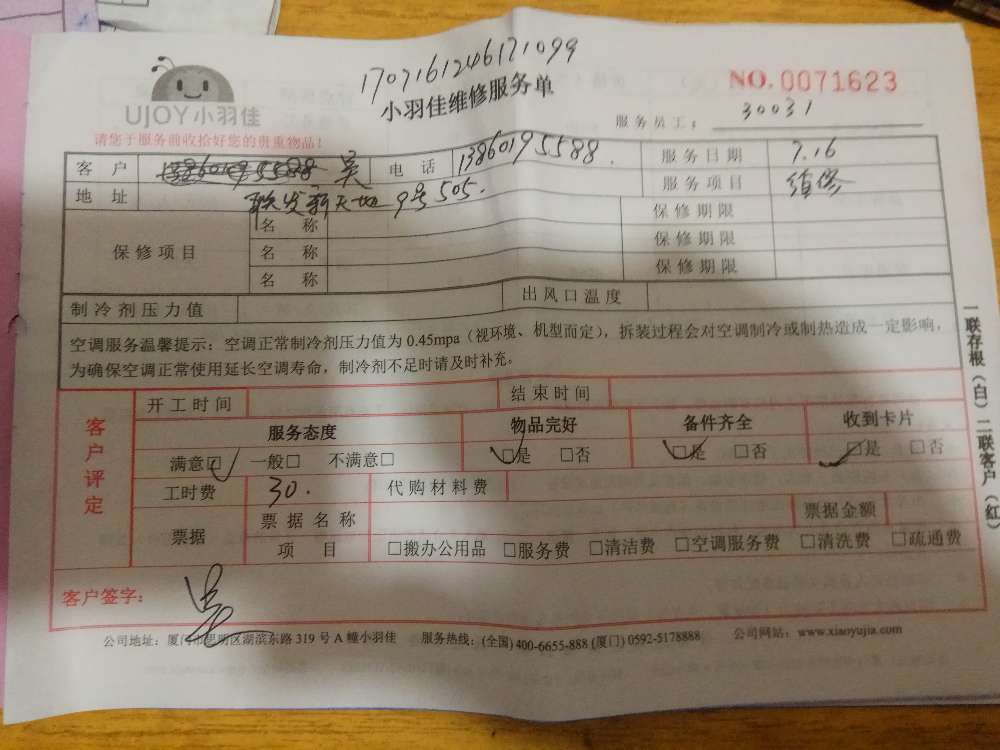 1707161246171099
NO.0071623
UJOY小羽佳
小羽佳维修服务单
服务员工: 30031
请您于服务前收拾好您的贵重物品!
客户 13860195588 吴 电话 13860195588. 服务日期 7.16
地址 联发新天地9号505. 服务项目 维修
保修项目 名称 保修期限
名称 保修期限
名称 保修期限
制冷剂压力值 出风口温度
空调服务温馨提示:空调正常制冷剂压力值为 0.45mpa(视环境、机型而定),拆装过程会对空调制冷或制热造成一定影响,
为确保空调正常使用延长空调寿命,制冷剂不足时请及时补充。
客户评定 开工时间 结束时间
服务态度 物品完好 备件齐全 收到卡片
满意□ 一般□ 不满意□ □是 □否 □是 □否 □是 □否
工时费 30. 代购材料费
票据 票据名称 票据金额
项目 □搬办公用品 □服务费 □清洁费 □空调服务费 □清洗费 □疏通费
客户签字: 吴
公司地址:厦门市思明区湖滨东路 319 号 A 幢小羽佳 服务热线:(全国) 400-6655-888 (厦门) 0592-5178888 公司网站:www.xiaoyujia.com
一联存根(白)二联客户(红)